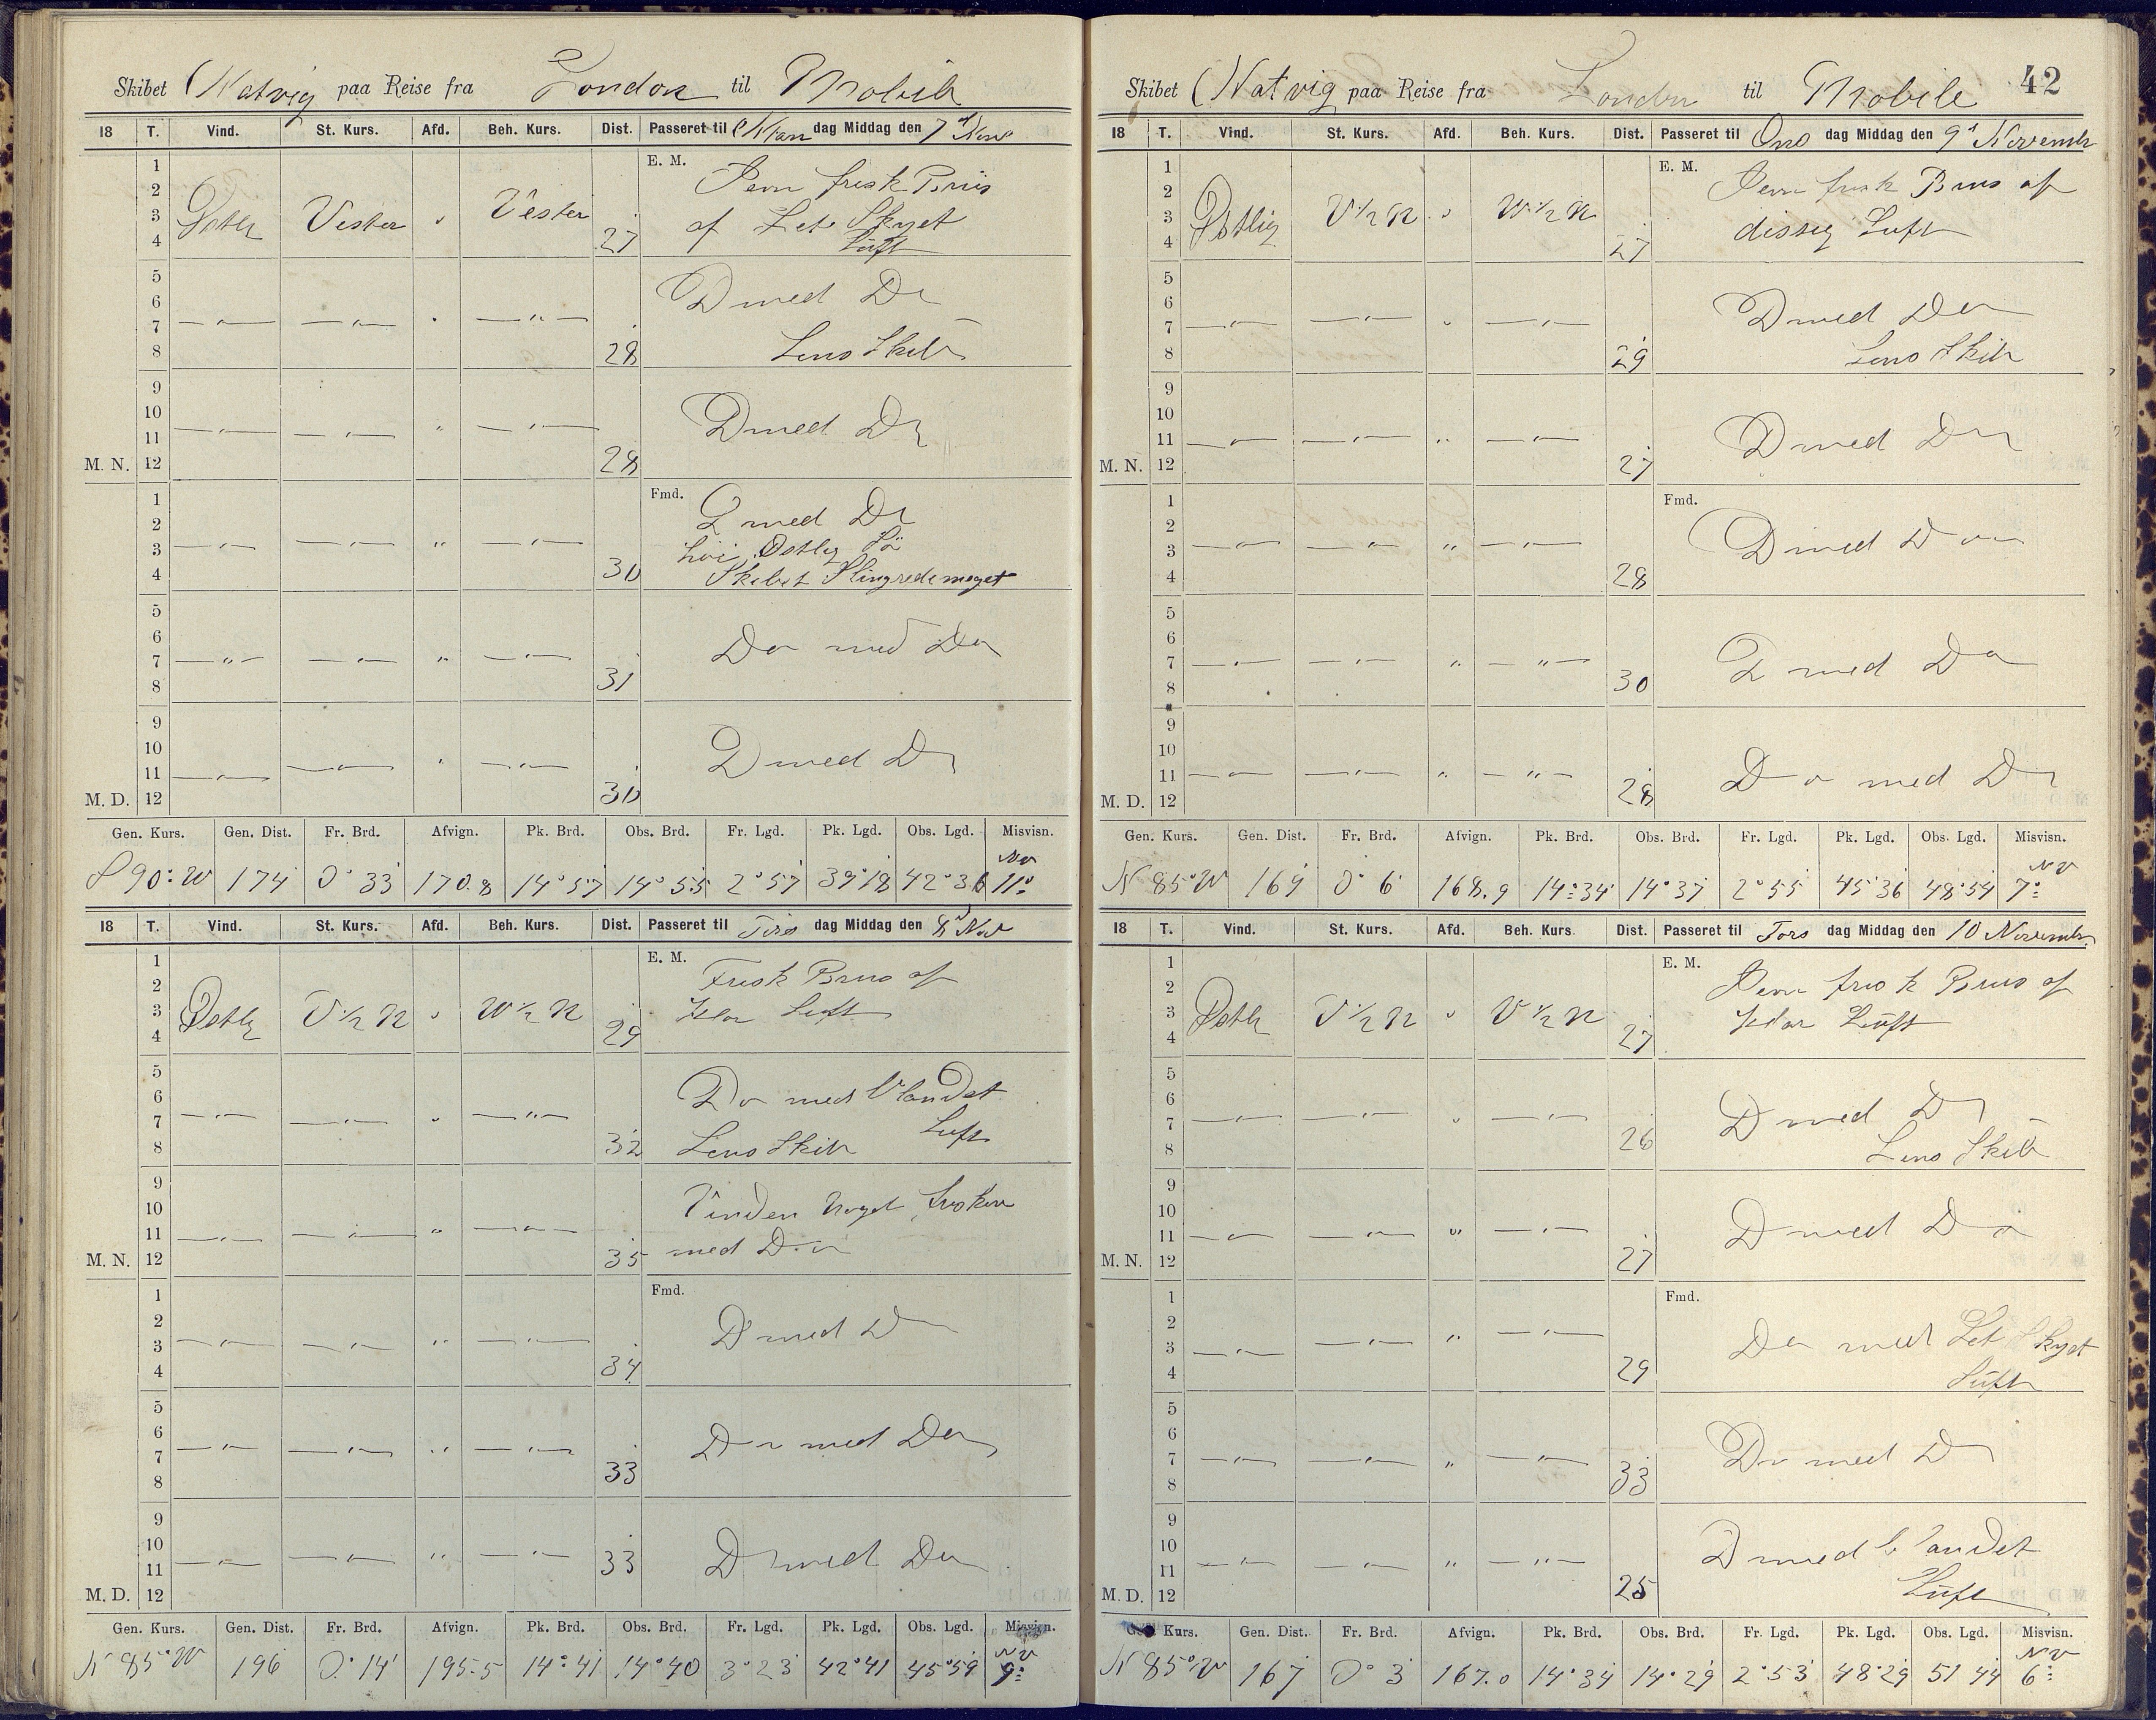 Skibet Natvig paa Reise fra London til Mobile
18 T. Vind. St. Kurs. Afd. Beh. Kurs. Dist. Passeret til Man dag Middag den 7d Nov
E. M.
1
2
3
4
Østlig Vester " Vester 27
Jevn frisk Bris
af Let Skyet
Luft
5
6
7
8
—"— —"— " —"— 28
D med Do
Lens Skib
9
10
11
M. N. 12
—"— —"— " —"— 28
D med Do
Fmd.
1
2
3
4
—"— —"— " —"— 30
D med Do
høi Østlig Sø
Skibet Slingrede meget
5
6
7
8
—"— —"— " —"— 31
Do med Do
9
10
11
M. D. 12
—"— —"— " —"— 30
D med Do
Gen. Kurs. Gen. Dist. Fr. Brd. Afvign. Pk. Brd. Obs. Brd. Fr. Lgd. Pk. Lgd. Obs. Lgd. Misvisn.
S 90° W 174 0° 33 170.8 14° 57 14° 55 2° 57 39° 18 42° 36 NV 11°
18 T. Vind. St. Kurs. Afd. Beh. Kurs. Dist. Passeret til Tirs dag Middag den 8d Nov
E. M.
1
2
3
4
Østlig V ½ N " W ½ N 29
Frisk Bris af
klar Luft
5
6
7
8
—"— —"— " —"— 32
Do med blandet
Luft
Lens Skib
9
10
11
M. N. 12
—"— —"— " —"— 35
Vinden noget friskere
med Do
Fmd.
1
2
3
4
—"— —"— " —"— 34
D med Do
5
6
7
8
—"— —"— " —"— 33
Do med Do
9
10
11
M. D. 12
—"— —"— " —"— 33
D med Do
Gen. Kurs. Gen. Dist. Fr. Brd. Afvign. Pk. Brd. Obs. Brd. Fr. Lgd. Pk. Lgd. Obs. Lgd. Misvisn.
N 85° W 196 0° 14' 195.5 14° 41 14° 40 3° 23 42° 41 45° 59 NV 9°
42
Skibet Natvig paa Reise fra London til Mobile
18 T. Vind. St. Kurs. Afd. Beh. Kurs. Dist. Passeret til Ons dag Middag den 9d November
E. M.
1
2
3
4
Østlig V ½ N " W ½ N 27
Jevn frisk Bris af
dissig Luft
5
6
7
8
—"— —"— " —"— 29
D med Do
Lens Skib
9
10
11
M. N. 12
—"— —"— " —"— 27
D med Do
Fmd.
1
2
3
4
—"— —"— " —"— 28
D med Do
5
6
7
8
—"— —"— " —"— 30
D med Do
9
10
11
M. D. 12
—"— —"— " —"— 28
Do med Do
Gen. Kurs. Gen. Dist. Fr. Brd. Afvign. Pk. Brd. Obs. Brd. Fr. Lgd. Pk. Lgd. Obs. Lgd. Misvisn.
N 85° W 169 0° 6 168.9 14° 34 14° 37 2° 55 45° 36 48° 54 NV 7°
18 T. Vind. St. Kurs. Afd. Beh. Kurs. Dist. Passeret til Tors dag Middag den 10 November
E. M.
1
2
3
4
Østlig V ½ N " V ½ N 27
Jevn frisk Bris af
klar Luft
5
6
7
8
—"— —"— " —"— 26
D med Do
Lens Skib
9
10
11
M. N. 12
—"— —"— " —"— 27
D med Do
Fmd.
1
2
3
4
—"— —"— " —"— 29
Do med Let Skyet
Luft
5
6
7
8
—"— —"— " —"— 33
Do med Do
9
10
11
M. D. 12
—"— —"— " —"— 25
D med blandet
Luft
Gen. Kurs. Gen. Dist. Fr. Brd. Afvign. Pk. Brd. Obs. Brd. Fr. Lgd. Pk. Lgd. Obs. Lgd. Misvisn.
N 85° W 167 0° 3 167.0 14° 34 14° 29 2° 53 48° 29 51 44 NV 6°